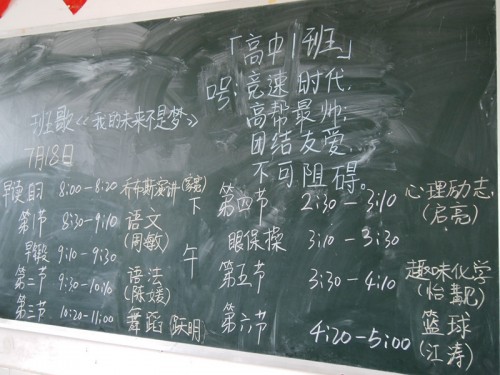 「高中1班」
口号:竞速时代,
高帮最帅;
团结友爱...
不可阻碍。
班歌《我的未来不是梦》
7月18日
早读 8:00-8:20 乔布斯演讲
第1节 8:30-9:10 语文
(周敏)
早锻 9:10-9:30
第二节 9:30-10:10 语法
(陈媛)
第三节 10:20-11:00 舞蹈
下午
第四节 2:30-3:10 心理励志
(启亮)
眼保操 3:10-3:30
第五节 3:30-4:10 趣味化学
第六节 4:20-5:00 篮球
(江涛)